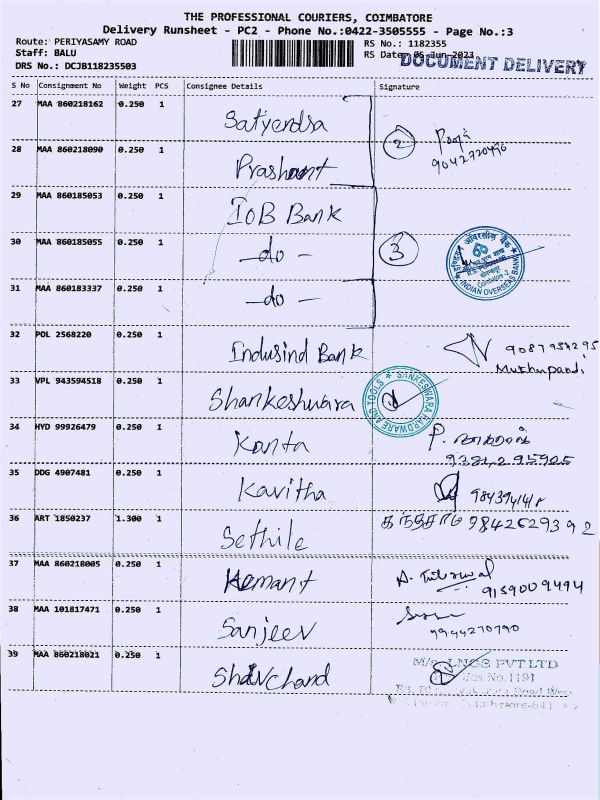 THE PROFESSIONAL COURIERS, COIMBATORE
Delivery Runsheet - PC2 - Phone No.:0422-3505555 - Page No.:3
Route: PERIYASAMY ROAD
Staff: BALU
DRS No.: DCJB118235503
RS No.: 1182355
RS Date: 05-Jun-2023
DOCUMENT DELIVERY
S No Consignment No Weight PCS Consignee Details Signature
27 MAA 860218162 0.250 1 Satyendra
28 MAA 860218090 0.250 1 Prashant 2 Pooja
29 MAA 860185053 0.250 1 IOB Bank
30 MAA 860185055 0.250 1 -do- 3
INDIAN OVERSEAS BANK
31 MAA 860183337 0.250 1 -do-
32 POL 2568220 0.250 1 Indusind Bank 9087954295
Muthupandi
33 VPL 943594518 0.250 1 Shankeshwara
SANKESWARA HARDWARE AND TOOLS
34 HYD 99926479 0.250 1 Kanta P.
35 DDG 4907481 0.250 1 Kavitha
36 ART 1850237 1.300 1 Sethile 9842629392
37 MAA 860218005 0.250 1 Hemant
9159009494
38 MAA 101817471 0.250 1 Sanjeev
9944270790
39 MAA 860218021 0.250 1 Shivchand
M/s. LNOS PVT LTD